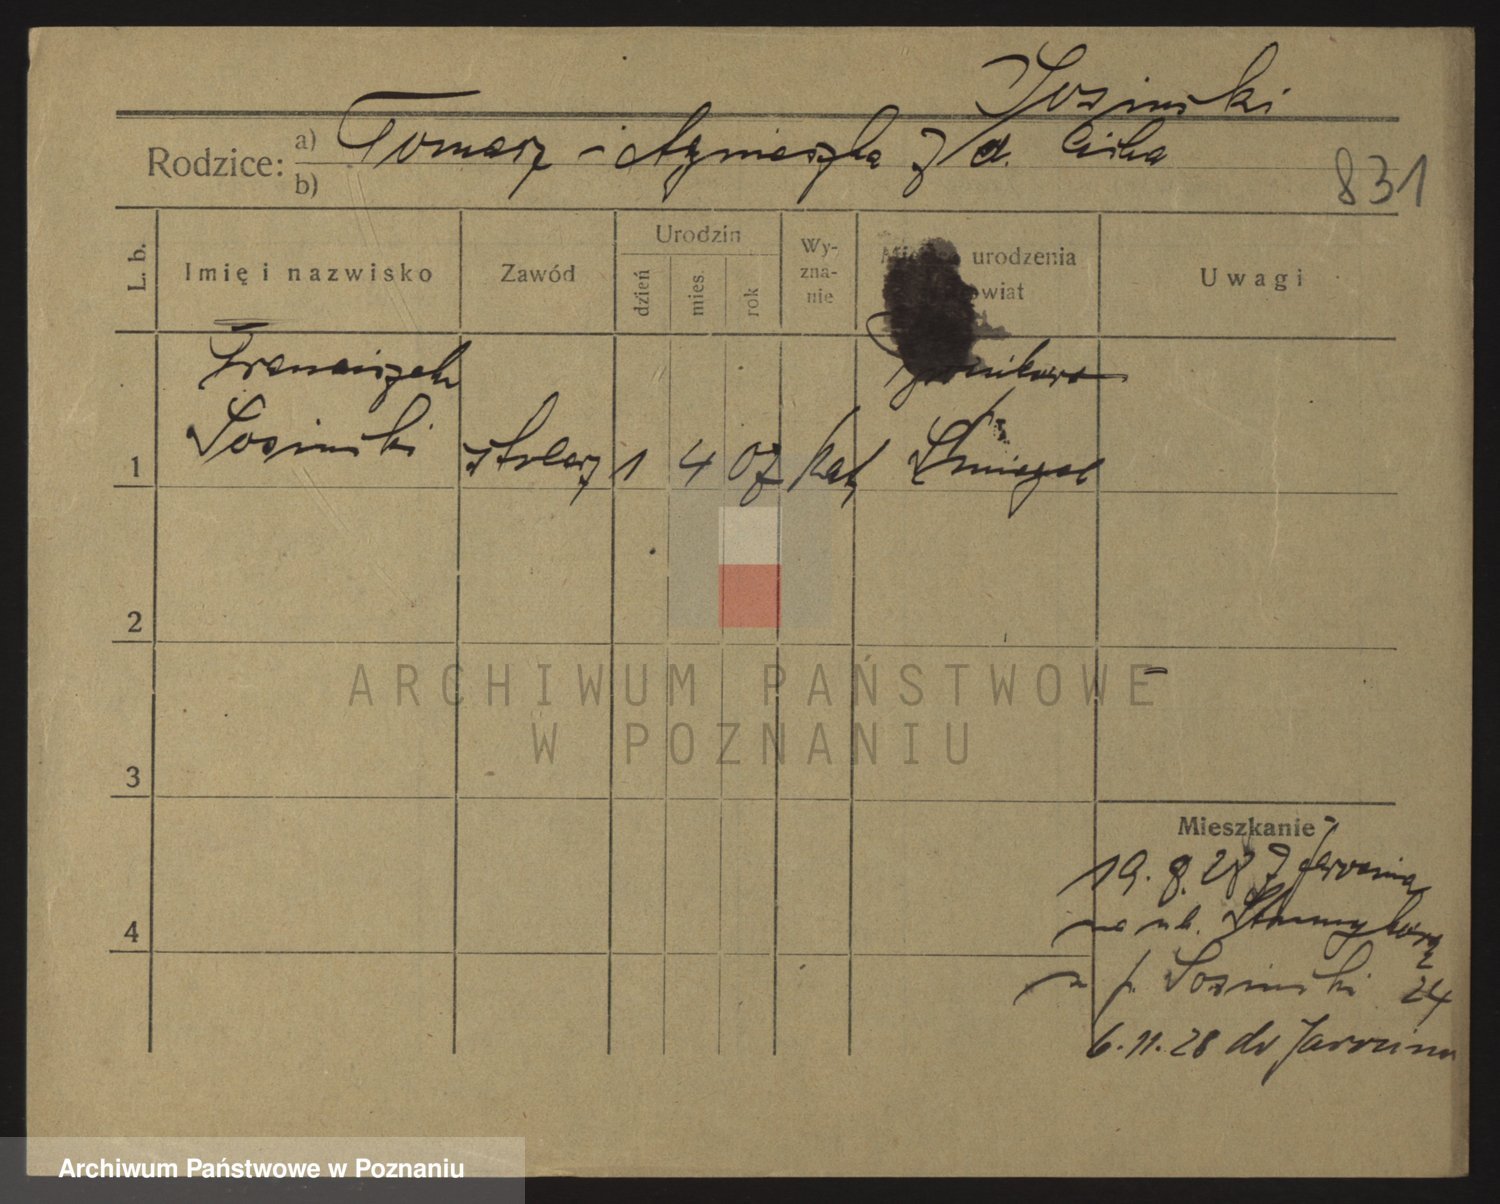 Sosinski
Rodzice: a) Tomasz i Agnieszka z d. Cicha
b)
831
L. b.
Imię i nazwisko
Zawód
Urodzin
dzień
mies.
rok
Wy-
zna-
nie
urodzenia
powiat
Uwagi
Franciszek
Sosinski
1
stolarz 1 4 07 kat Śmigiel
2
3
4
Mieszkanie
19. 8. 28 z Jarocina
na ul.
p. Sosinski 24
6. 11. 28 do Jarocina
ARCHIWUM PAŃSTWOWE
W POZNANIU
Archiwum Państwowe w Poznaniu